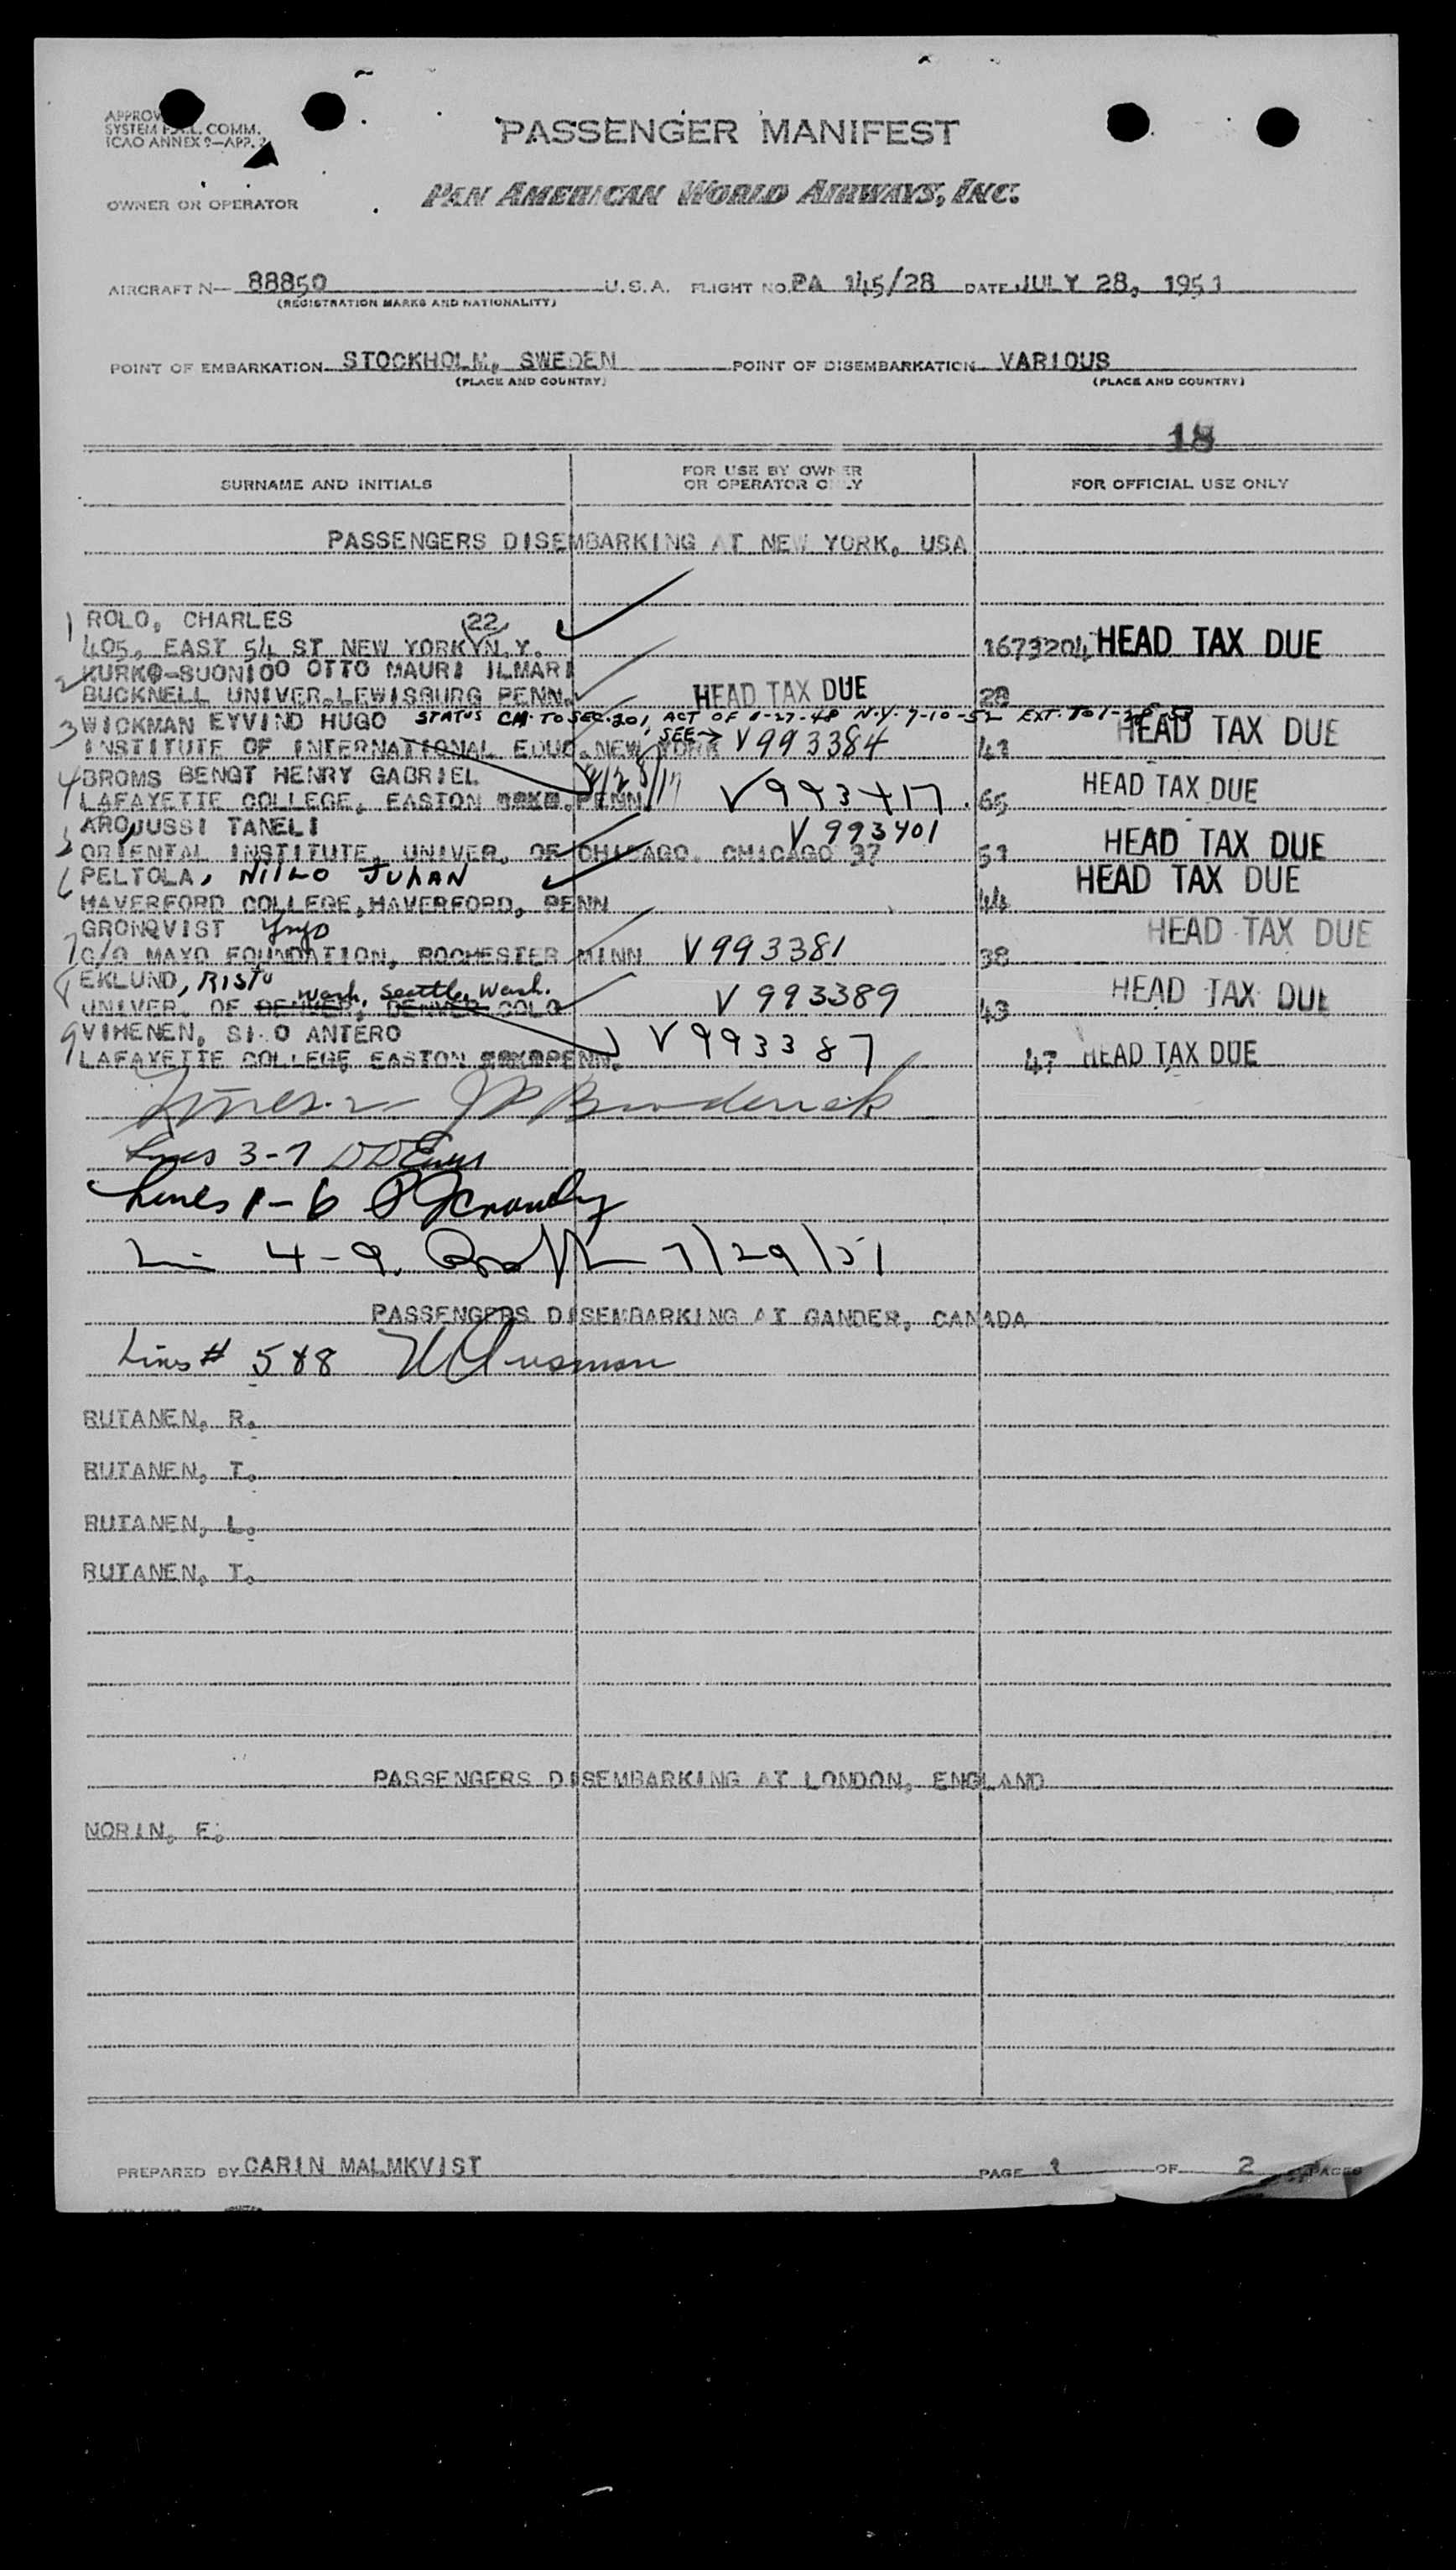 PASSENGER MANIFEST
SYSTEM F.A.L. COMM.
ICAO ANNEX 9—APP. 2
OWNER OR OPERATOR
PAN AMERICAN WORLD AIRWAYS, INC.
AIRCRAFT N— 88850 U.S.A. FLIGHT NO. PA 145/28 DATE JULY 28, 1951
(REGISTRATION MARKS AND NATIONALITY)
POINT OF EMBARKATION STOCKHOLM, SWEDEN POINT OF DISEMBARKATION VARIOUS
(PLACE AND COUNTRY) (PLACE AND COUNTRY)
18
SURNAME AND INITIALS FOR USE BY OWNER OR OPERATOR ONLY FOR OFFICIAL USE ONLY
PASSENGERS DISEMBARKING AT NEW YORK, USA
1 ROLO, CHARLES 22
405, EAST 54 ST NEW YORK N.Y. 1673204 HEAD TAX DUE
2 KURKO-SUONIOO OTTO MAURI ILMARI
BUCKNELL UNIVER. LEWISBURG PENN. HEAD TAX DUE 28
3 WICKMAN EYVIND HUGO STATUS CH. TO SEC. 201, ACT OF 1-27-48 N.Y. 7-10-52 EXT. TO HEAD TAX DUE
INSTITUTE OF INTERNATIONAL EDUC. NEW YORK SEE→ V993384 41
4 BROMS BENGT HENRY GABRIEL
LAFAYETTE COLLEGE, EASTON PENN. V993417 65 HEAD TAX DUE
5 ARO, JUSSI TANELI V993401
ORIENTAL INSTITUTE, UNIVER. OF CHICAGO. CHICAGO 37 51 HEAD TAX DUE
6 PELTOLA, NIILO JUHAN HEAD TAX DUE
HAVERFORD COLLEGE, HAVERFORD, PENN 44
7 GRONQVIST Yrjo HEAD TAX DUE
C/O MAYO FOUNDATION, ROCHESTER MINN V993381 38
8 EKLUND, RISTO HEAD TAX DUE
Wash, Seattle, Wash.
UNIVER. OF DENVER, DENVER COLO V993389 43
9 VIHENEN, SI O ANTERO
LAFAYETTE COLLEGE, EASTON PENN. V993387 47 HEAD TAX DUE
Lines 2 J P Broderick
Lines 3-7
Lines 1-6
4-9 7/29/51
PASSENGERS DISEMBARKING AT GANDER, CANADA
Lines # 5 & 8
RUTANEN, R.
RUTANEN, T.
RUTANEN, L.
RUTANEN, T.
PASSENGERS DISEMBARKING AT LONDON, ENGLAND
NORIN, E.
PREPARED BY CARIN MALMKVIST PAGE 1 OF 2 PAGES